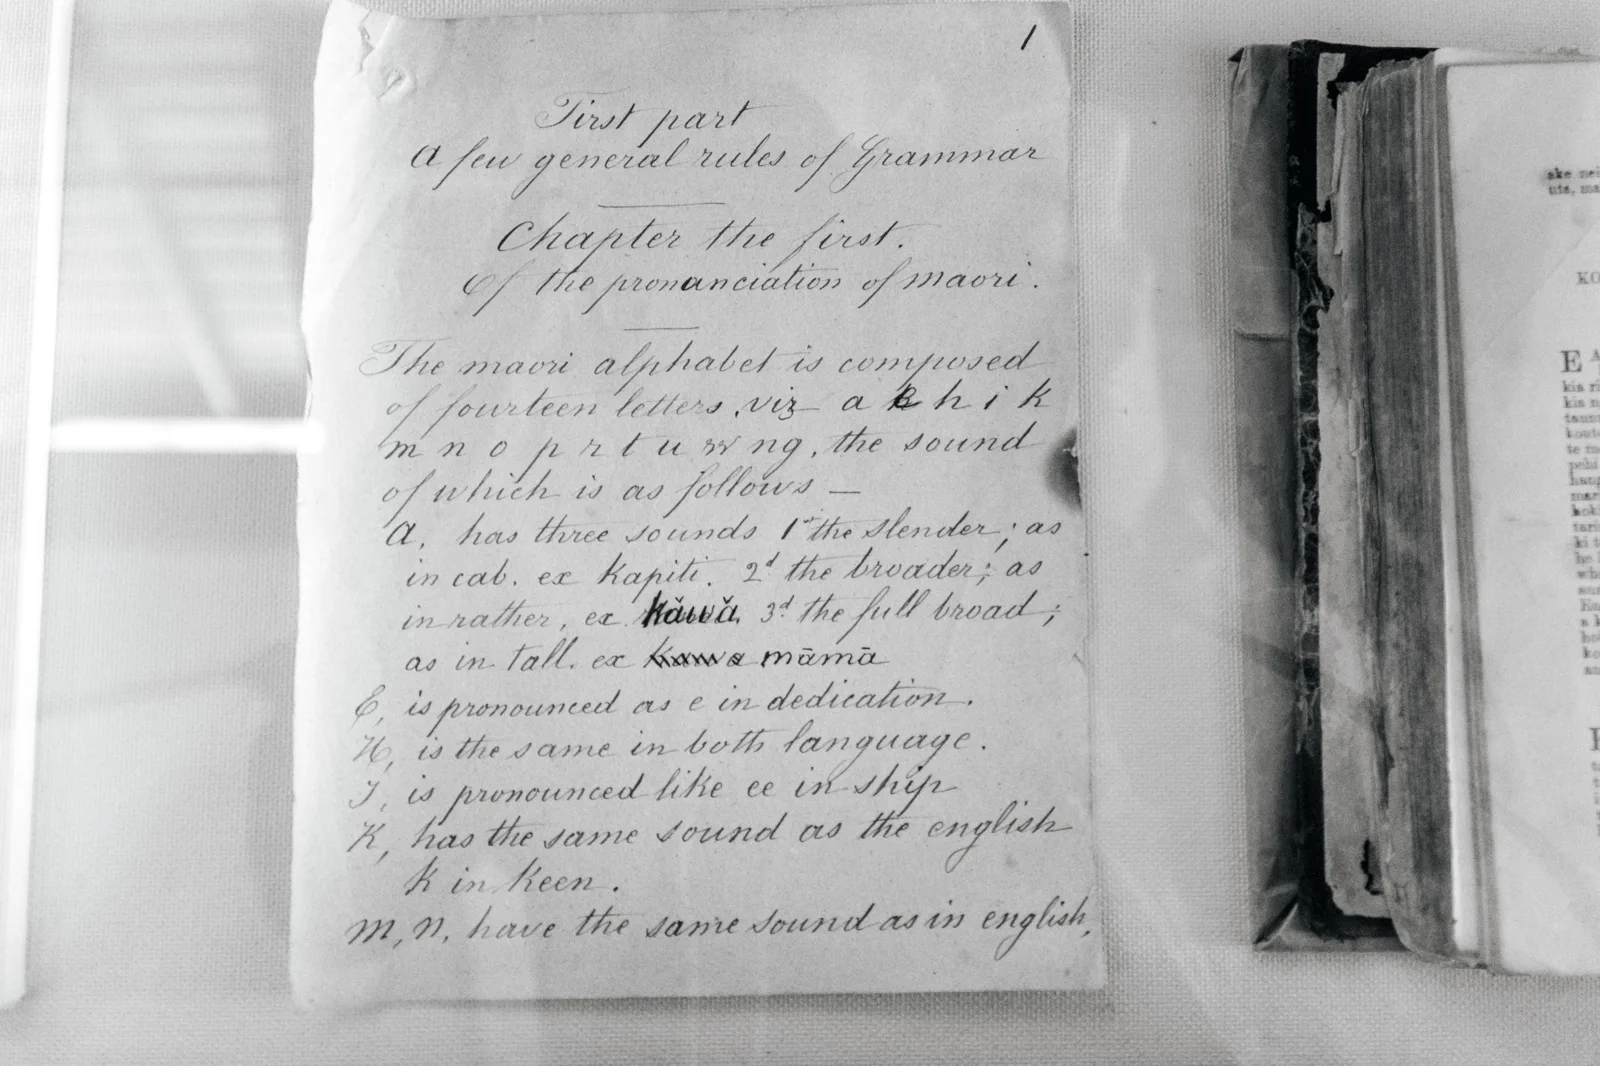 1
First part
A few general rules of Grammar
Chapter the first.
Of the pronanciation of maori.
The maori alphabet is composed
of fourteen letters, viz a e h i k
m n o p r t u w ng, the sound
of which is as follows —
A, has three sounds 1st the slender; as
in cab. ex Kapiti. 2d the broader; as
in rather, ex kǎwǎ. 3d the full broad;
as in Tall. ex kawa māmā
E, is pronounced as e in dedication.
H, is the same in both language.
I, is pronounced like ee in ship
K, has the same sound as the english
k in keen.
M, N, have the same sound as in english,
ake
KO
E A
kia
kia
te